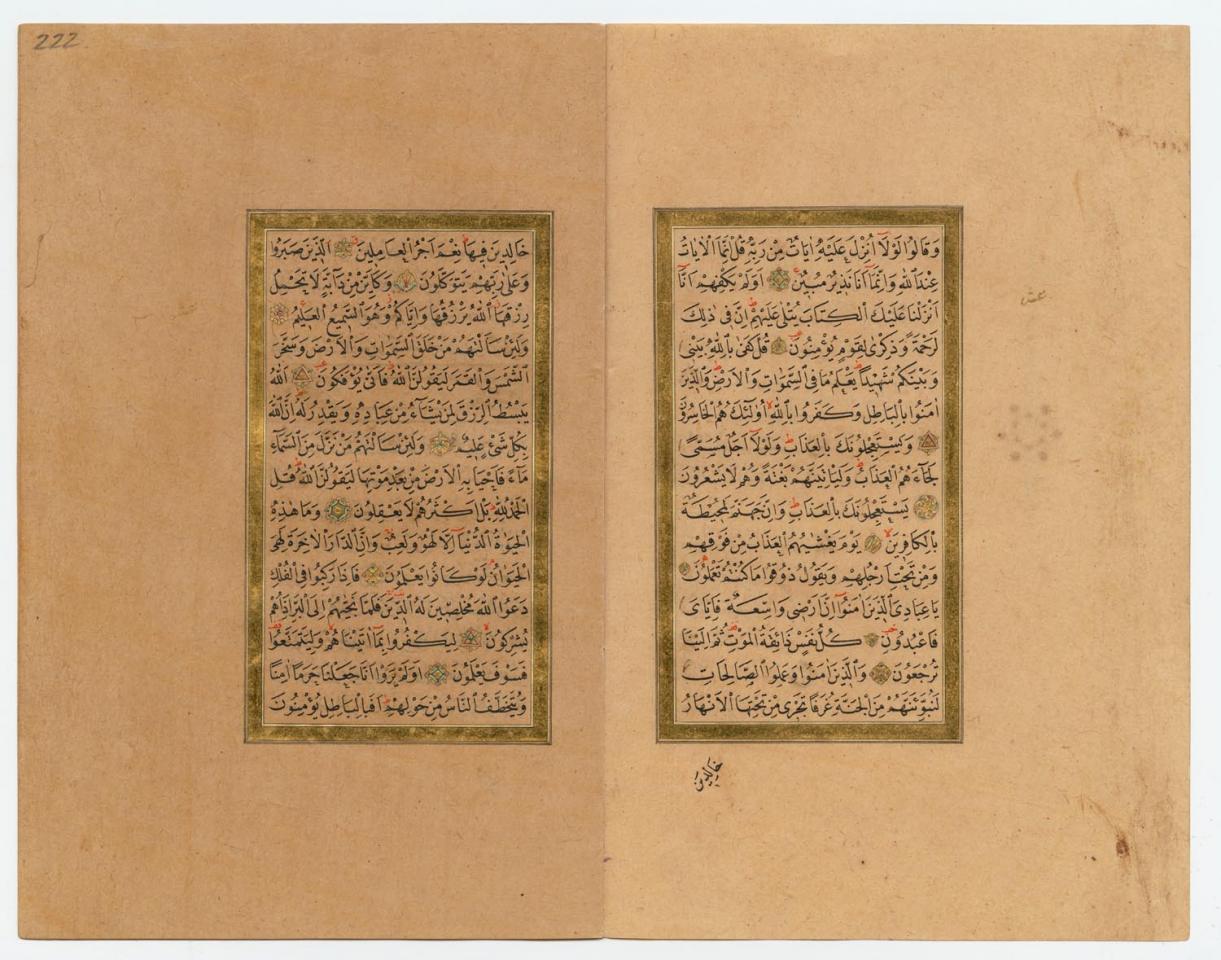 وَقَالُوا لَوْلَا اُنْزِلَ عَلَيْهِ اٰيَاتٌ مِنْ رَبِّهِ قُلْ اِنَّمَا الْاٰيَاتُ
عِنْدَ اللّٰهِ وَاِنَّمَا اَنَا نَذِيرٌ مُبِينٌ اَوَلَمْ يَكْفِهِمْ اَنَّا
اَنْزَلْنَا عَلَيْكَ الْكِتَابَ يُتْلٰى عَلَيْهِمْ اِنَّ فِى ذٰلِكَ
لَرَحْمَةً وَذِكْرٰى لِقَوْمٍ يُؤْمِنُونَ قُلْ كَفٰى بِاللّٰهِ بَيْنِى
وَبَيْنَكُمْ شَهِيدًا يَعْلَمُ مَا فِى السَّمٰوَاتِ وَالْاَرْضِ وَالَّذِينَ
اٰمَنُوا بِالْبَاطِلِ وَكَفَرُوا بِاللّٰهِ اُولٰئِكَ هُمُ الْخَاسِرُونَ
وَيَسْتَعْجِلُونَكَ بِالْعَذَابِ وَلَوْلَا اَجَلٌ مُسَمًّى
لَجَاءَهُمُ الْعَذَابُ وَلَيَأْتِيَنَّهُمْ بَغْتَةً وَهُمْ لَا يَشْعُرُونَ
يَسْتَعْجِلُونَكَ بِالْعَذَابِ وَاِنَّ جَهَنَّمَ لَمُحِيطَةٌ
بِالْكَافِرِينَ يَوْمَ يَغْشٰيهُمُ الْعَذَابُ مِنْ فَوْقِهِمْ
وَمِنْ تَحْتِ اَرْجُلِهِمْ وَيَقُولُ ذُوقُوا مَا كُنْتُمْ تَعْمَلُونَ
يَا عِبَادِىَ الَّذِينَ اٰمَنُوا اِنَّ اَرْضِى وَاسِعَةٌ فَاِيَّاىَ
فَاعْبُدُونِ كُلُّ نَفْسٍ ذَائِقَةُ الْمَوْتِ ثُمَّ اِلَيْنَا
تُرْجَعُونَ وَالَّذِينَ اٰمَنُوا وَعَمِلُوا الصَّالِحَاتِ
لَنُبَوِّئَنَّهُمْ مِنَ الْجَنَّةِ غُرَفًا تَجْرِى مِنْ تَحْتِهَا الْاَنْهَارُ
خَالِدِينَ
عشر
222
خَالِدِينَ فِيهَا نِعْمَ اَجْرُ الْعَامِلِينَ الَّذِينَ صَبَرُوا
وَعَلٰى رَبِّهِمْ يَتَوَكَّلُونَ وَكَاَيِّنْ مِنْ دَابَّةٍ لَا تَحْمِلُ
رِزْقَهَا اللّٰهُ يَرْزُقُهَا وَاِيَّاكُمْ وَهُوَ السَّمِيعُ الْعَلِيمُ
وَلَئِنْ سَاَلْتَهُمْ مَنْ خَلَقَ السَّمٰوَاتِ وَالْاَرْضَ وَسَخَّرَ
الشَّمْسَ وَالْقَمَرَ لَيَقُولُنَّ اللّٰهُ فَاَنّٰى يُؤْفَكُونَ اَللّٰهُ
يَبْسُطُ الرِّزْقَ لِمَنْ يَشَاءُ مِنْ عِبَادِهِ وَيَقْدِرُ لَهُ اِنَّ اللّٰهَ
بِكُلِّ شَىْءٍ عَلِيمٌ وَلَئِنْ سَاَلْتَهُمْ مَنْ نَزَّلَ مِنَ السَّمَاءِ
مَاءً فَاَحْيَا بِهِ الْاَرْضَ مِنْ بَعْدِ مَوْتِهَا لَيَقُولُنَّ اللّٰهُ قُلِ
الْحَمْدُ لِلّٰهِ بَلْ اَكْثَرُهُمْ لَا يَعْقِلُونَ وَمَا هٰذِهِ
الْحَيٰوةُ الدُّنْيَا اِلَّا لَهْوٌ وَلَعِبٌ وَاِنَّ الدَّارَ الْاٰخِرَةَ لَهِىَ
الْحَيَوَانُ لَوْ كَانُوا يَعْلَمُونَ فَاِذَا رَكِبُوا فِى الْفُلْكِ
دَعَوُا اللّٰهَ مُخْلِصِينَ لَهُ الدِّينَ فَلَمَّا نَجّٰيهُمْ اِلَى الْبَرِّ اِذَا هُمْ
يُشْرِكُونَ لِيَكْفُرُوا بِمَا اٰتَيْنَاهُمْ وَلِيَتَمَتَّعُوا
فَسَوْفَ يَعْلَمُونَ اَوَلَمْ يَرَوْا اَنَّا جَعَلْنَا حَرَمًا اٰمِنًا
وَيُتَخَطَّفُ النَّاسُ مِنْ حَوْلِهِمْ اَفَبِالْبَاطِلِ يُؤْمِنُونَ